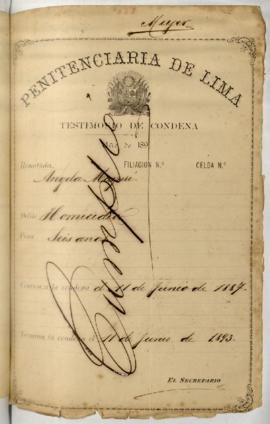 Mujer
PENITENCIARIA DE LIMA
TESTIMONIO DE CONDENA
Año de 189
Rematada, FILIACION N.° CELDA N.°
Angela
Delito Homicidio
Pena Seis años
Comenzó la condena el 11 de Junio de 1887.
Termina la condena el 11 de Junio de 1893.
EL SECRETARIO
Cumplida